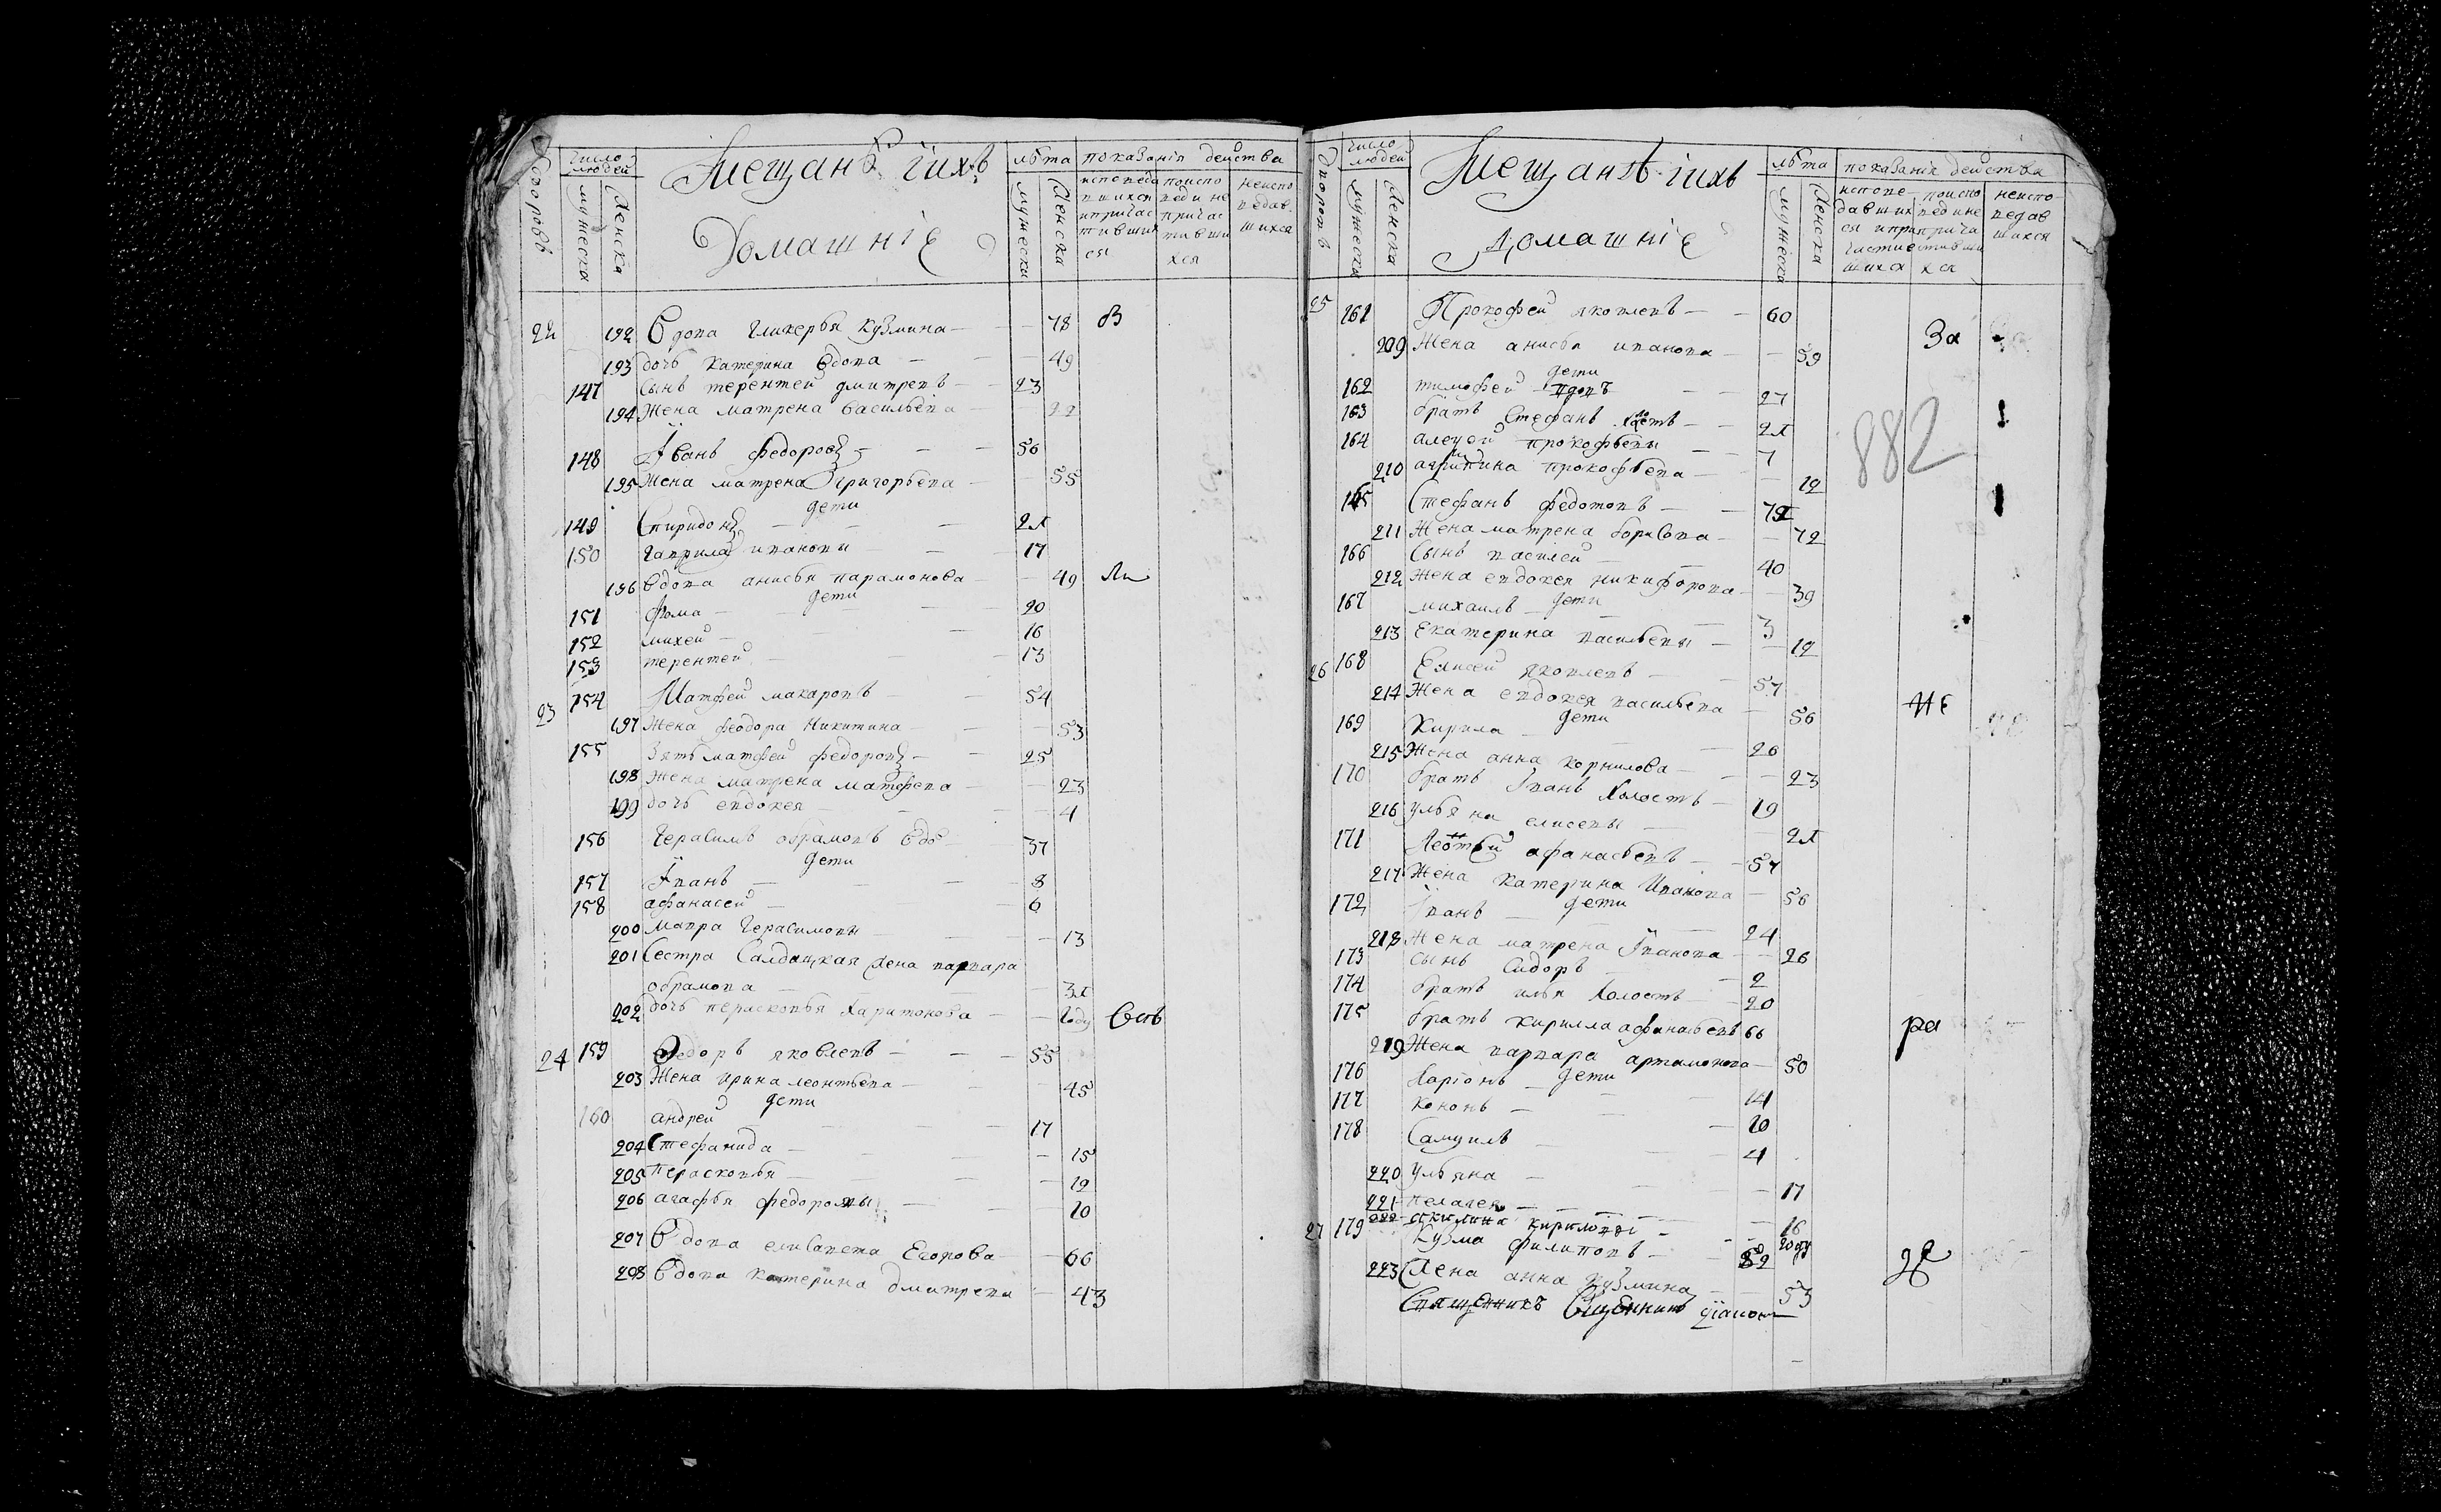 дворовъ
число людей
мужеска
женска
Мещанѣ ихъ
Домашніе
лѣта
мужеска
женска
показанія действа
исповеда вшихся и причас тивших ся
по испо веди не причас тивши хся
неиспо ведав шихся
22 192 Вдова Гликерья Кузмина — 78 в
193 дочь Катерина вдова — 49
147 Сынъ терентей дмитревъ — 23
194 Жена матрена васильева — 22
148 Іванъ Федоровъ — 56
195 Жена матрена Григорьева — 55
дети
149 Спиридонъ — 21
150 гаврила ивановы — 17
196 вдова анисья парамонова — 49 Ли
дети
151 фома — 20
152 михей — 16
153 терентей — 13
23 154 Матфей макаровъ — 54
197 Жена феодора Никитина — 53
155 Зять матфей федоровъ — 25
198 Жена матрена матфева — 23
199 дочь евдокея — 4
156 Герасимъ обрамовъ вдо 37
дети
157 Іванъ — 8
158 афанасей — 6
200 мавра Герасимовы — 13
201 Сестра Салдацкая жена варвара
обрамова — 31
202 дочь перасковья Харитонова — году Свъ
24 159 Федоръ яковлевъ — 55
203 Жена ирина леонтьева — 45
дети
160 андрей — 17
204 Стефанида — 15
205 Перасковья — 12
206 агафья федоровы — 10
207 Вдова елисавета Егорова — 66
208 Вдова катерина дмитрева — 43
дворовъ
число людей
мужеска
женска
Мещанѣ ихъ
домашніе
лѣта
мужеска
женска
показаніе действа
испове давших ся и при частив шихся
по испо веди не прича стивши хся
неиспо ведав шихся
25 161 Прокофей яковлевъ — 60
За
209 Жена анисья иванова — 59
дети
162 тимофей вдовъ — 27
163 братъ Стефанъ хостъ — 21
164 алеѯей прокофьевы — 7
882
210 агрипина прокофьева — 12
165 Стефанъ федотовъ — 71
211 Жена матрена борисова — 72
166 Сынъ василей — 40
212 Жена евдокея никифорова — 39
дети
167 михаилъ — 3
213 Екатерина васильевы — 12
26 168 Елисей яковлевъ — 57
214 Жена евдокея васильева — 56 не
дети
169 Кирила — 26
215 Жена анна корнилова — 23
170 братъ Іванъ Холостъ — 19
216 ульяна елисевы — 21
171 афанасьевъ — 57
217 Жена катерина Иванова — 56
дети
172 Іванъ — 24
218 Жена матрена Іванова — 26
173 сынъ Сидоръ — 2
174 братъ илья Холостъ — 20
175 братъ кирилла афанасьевъ 66 ра
219 Жена варвара артамонова — 50
дети
176 Ларіонъ — 14
177 Кононъ — 10
178 Самуилъ — 4
220 Ульяна — 17
221 пелагея — 16
222 акилина кириловы — году
27 179 Кузма филиповъ — 52
де
223 Жена анна кузмина — 53
Священникъ Сщенник